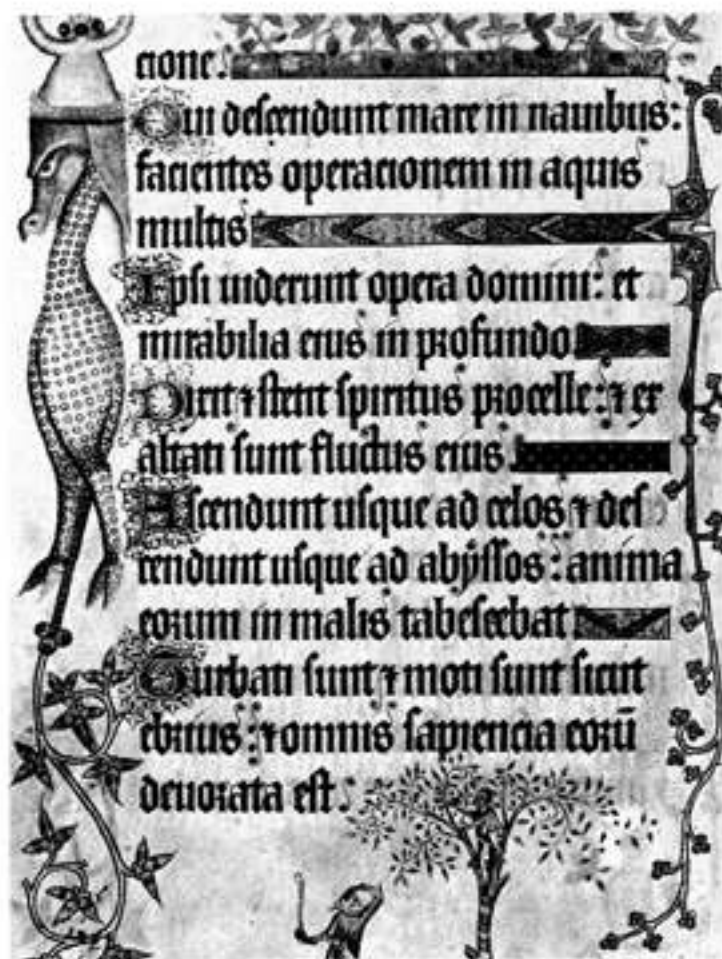 cione.
Qui descendunt mare in nauibus:
facientes operacionem in aquis
multis
Ipsi uiderunt opera domini: et
mirabilia eius in profundo.
Dixit ⁊ stetit spiritus procelle: ⁊ ex
altati sunt fluctus eius.
Ascendunt usque ad celos ⁊ des
cendunt usque ad abyssos: anima
eorum in malis tabescebat.
Turbati sunt ⁊ moti sunt sicut
ebrius: ⁊ omnis sapiencia eorū
deuorata est.